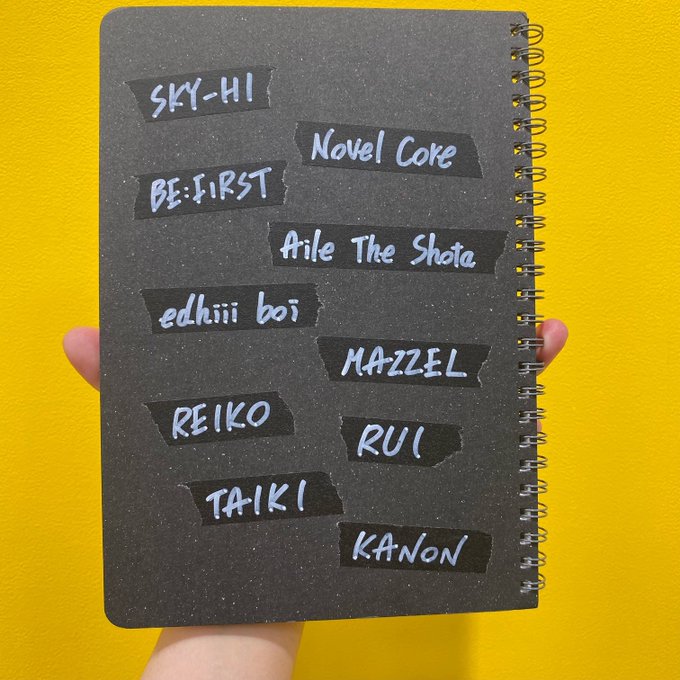 SKY-HI
Novel Core
BE:FIRST
Aile The Shota
edhiii boi
MAZZEL
REIKO
RUI
TAIKI
KANON